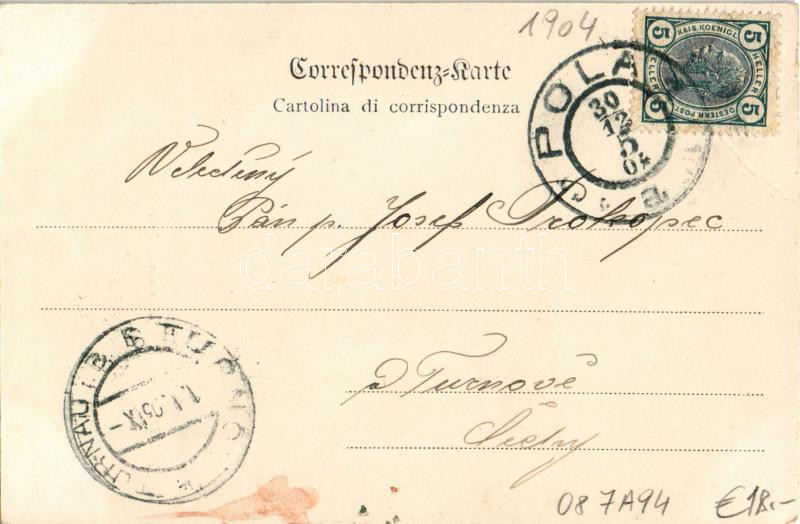 1904
Correspondenz-Karte
Cartolina di corrispondenza
POLA
30
12
5
04
5 KAIS. KOENIGL. 5
HELLER HELLER
5 OESTERR. POST 5
Pán p. Josef Prokopec
darabanth
v Turnově
Čechy
TURNAU TURNOV
1.1.05 IX
087A94 €18.-